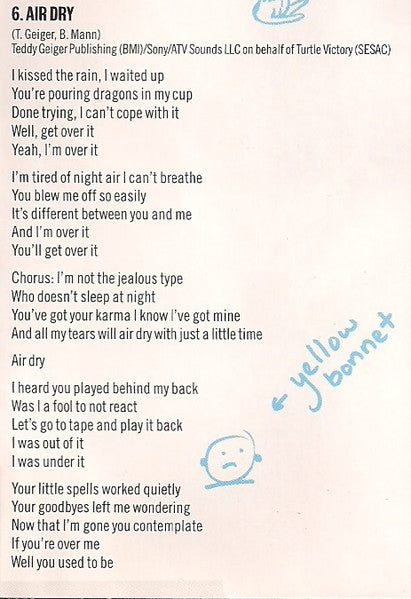 6. AIR DRY
(T. Geiger, B. Mann)
Teddy Geiger Publishing (BMI)/Sony/ATV Sounds LLC on behalf of Turtle Victory (SESAC)
I kissed the rain, I waited up
You're pouring dragons in my cup
Done trying, I can't cope with it
Well, get over it
Yeah, I'm over it
I'm tired of night air I can't breathe
You blew me off so easily
It's different between you and me
And I'm over it
You'll get over it
Chorus: I'm not the jealous type
Who doesn't sleep at night
You've got your karma I know I've got mine
And all my tears will air dry with just a little time
Air dry
I heard you played behind my back
Was I a fool to not react
Let's go to tape and play it back
I was out of it
I was under it
Your little spells worked quietly
Your goodbyes left me wondering
Now that I'm gone you contemplate
If you're over me
Well you used to be
yellow
bonnet